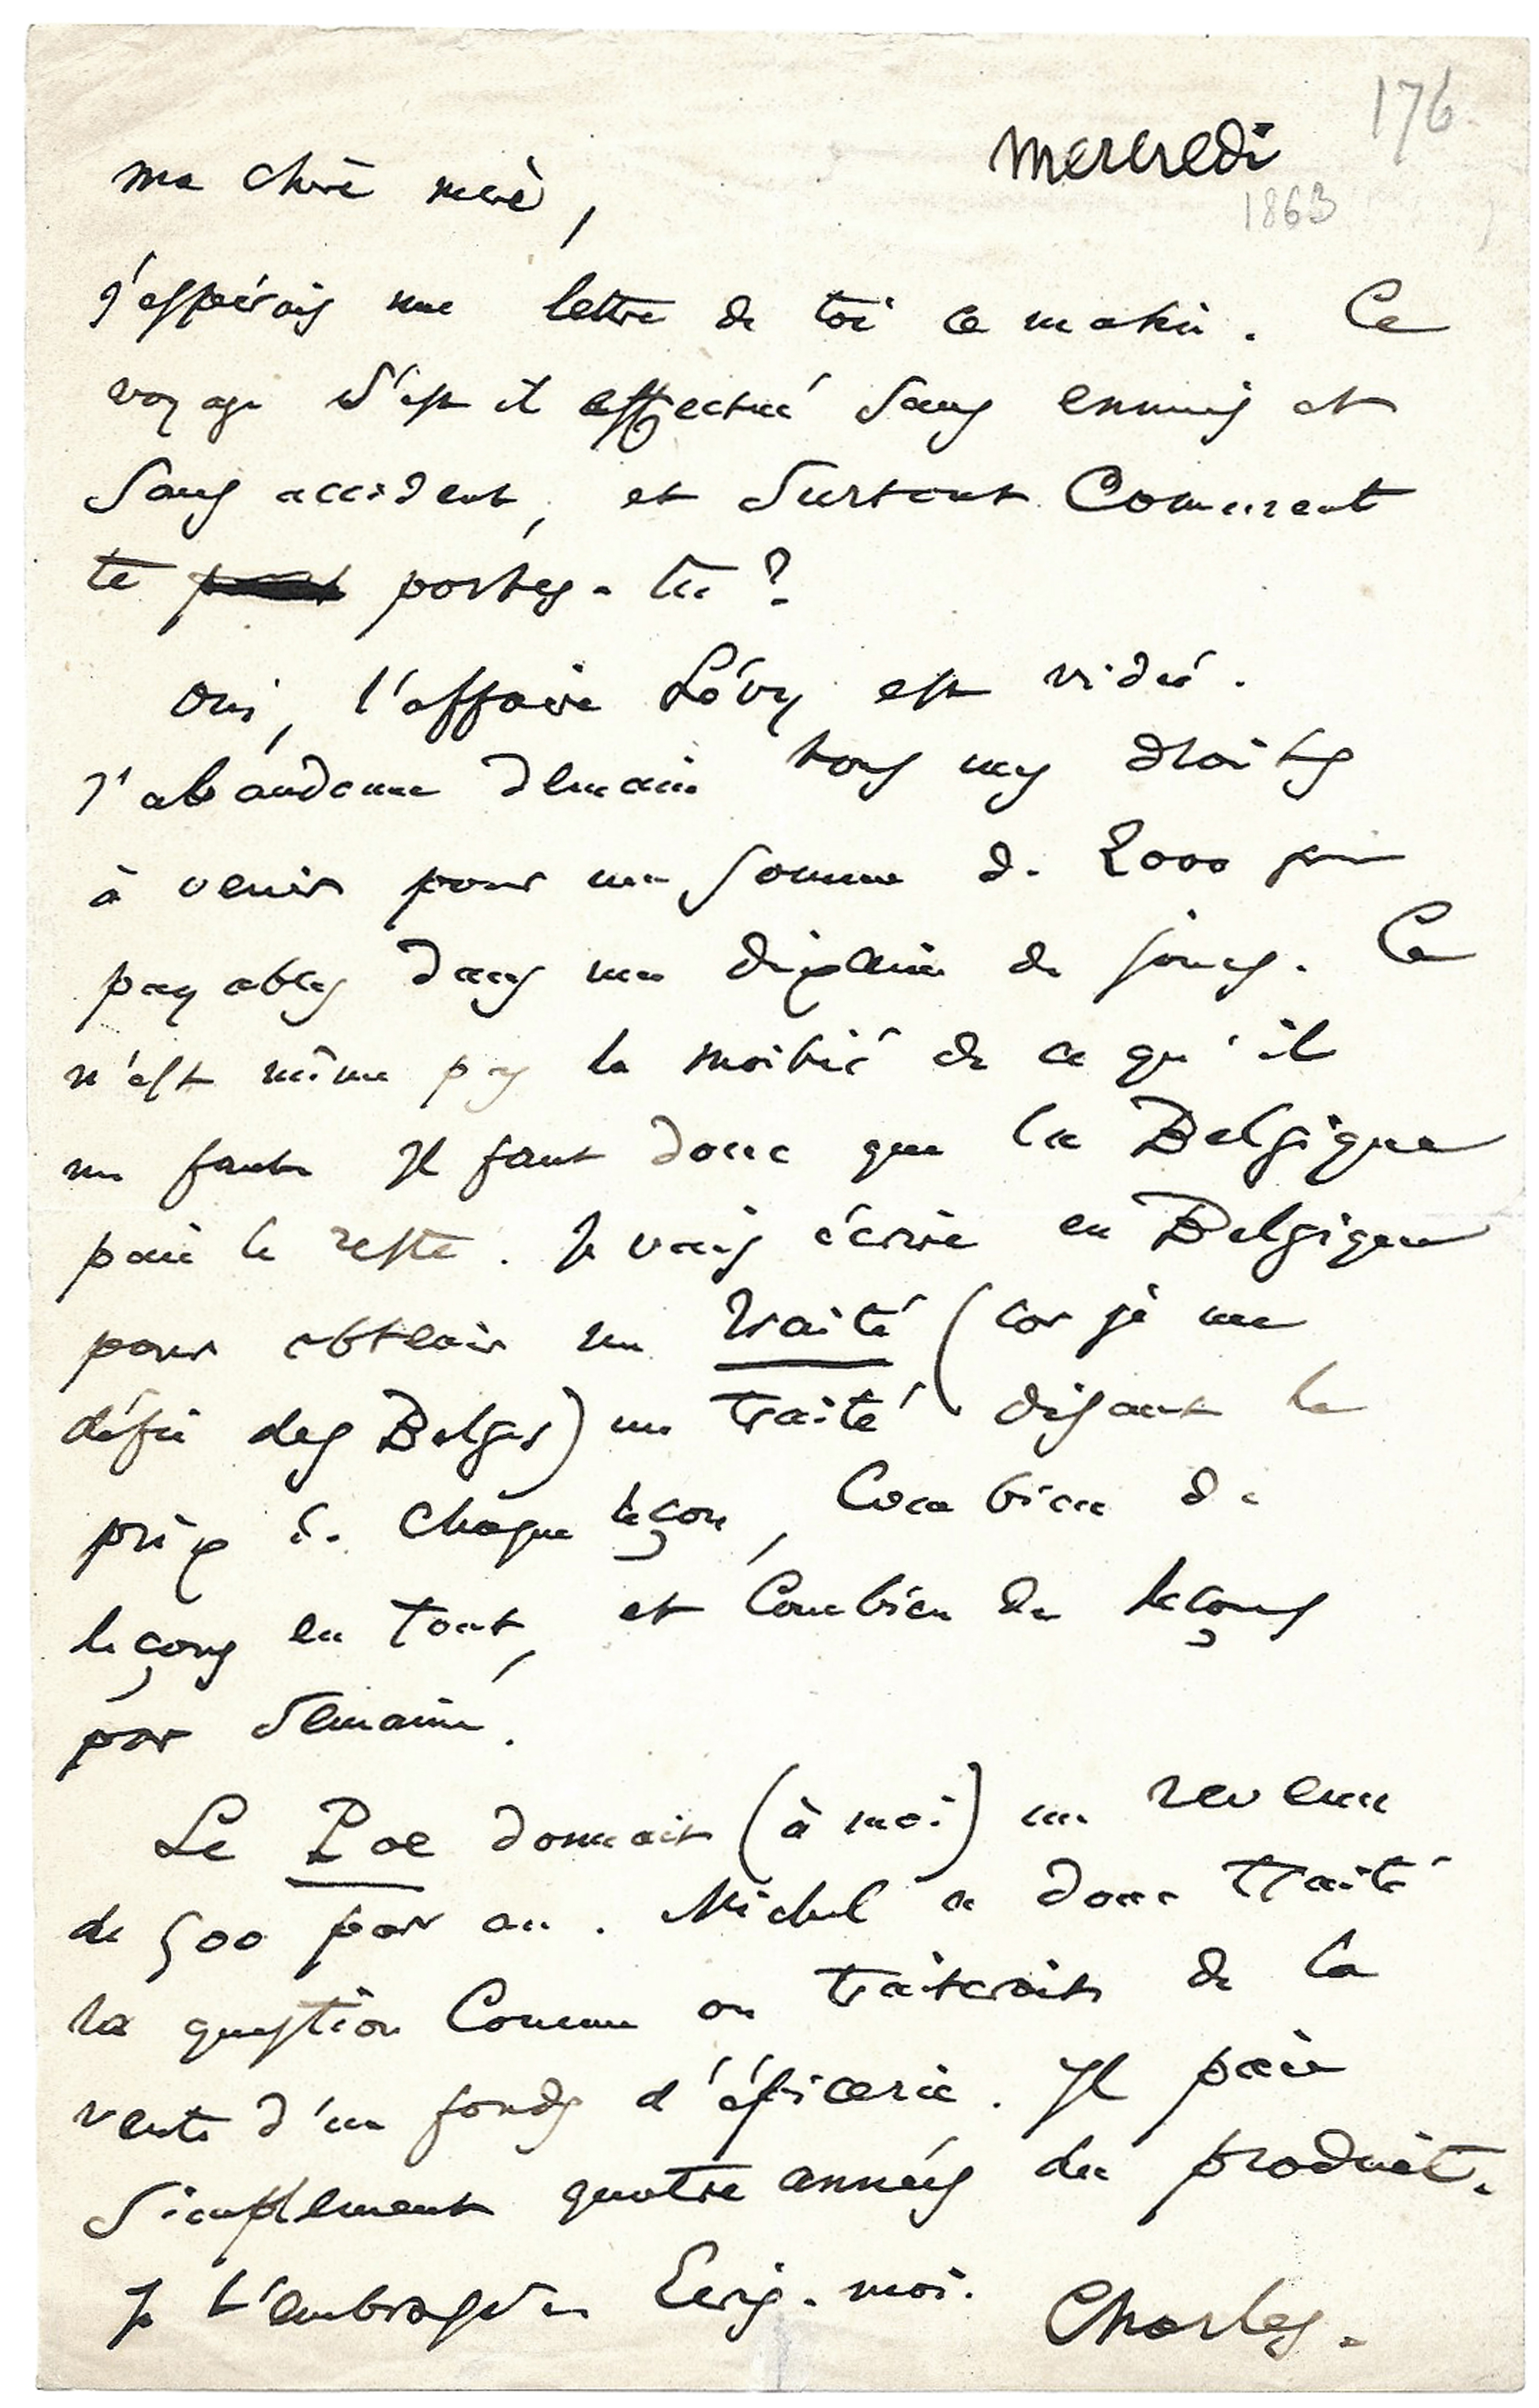 176
mercredi
1863
ma chère mère,
j'espérais une lettre de toi ce matin. Ce
voyage s'est il effectué sans ennuis et
sans accident, et surtout comment
te portes-tu?
Oui, l'affaire Lévy est vidée.
J'abandonne demain tous mes droits
à venir pour une somme de 2000
payables dans une dixaine de jours. Ce
n'est même pas la moitié de ce qu'il
me faut. Il faut donc que la Belgique
paie le reste. Je vais écrire en Belgique
pour obtenir un traité (car je me
défie des Belges) un traité disant le
prix de chaque leçon, combien de
leçons en tout, et combien de leçons
par semaine.
Le Poe donnait (à moi) un revenu
de 500 par an. Michel a donc traité
la question comme on traiterait de la
vente d'un fonds d'épicerie. Il paie
simplement quatre années du produit.
Je t'embrasse. Ecris-moi.
Charles.